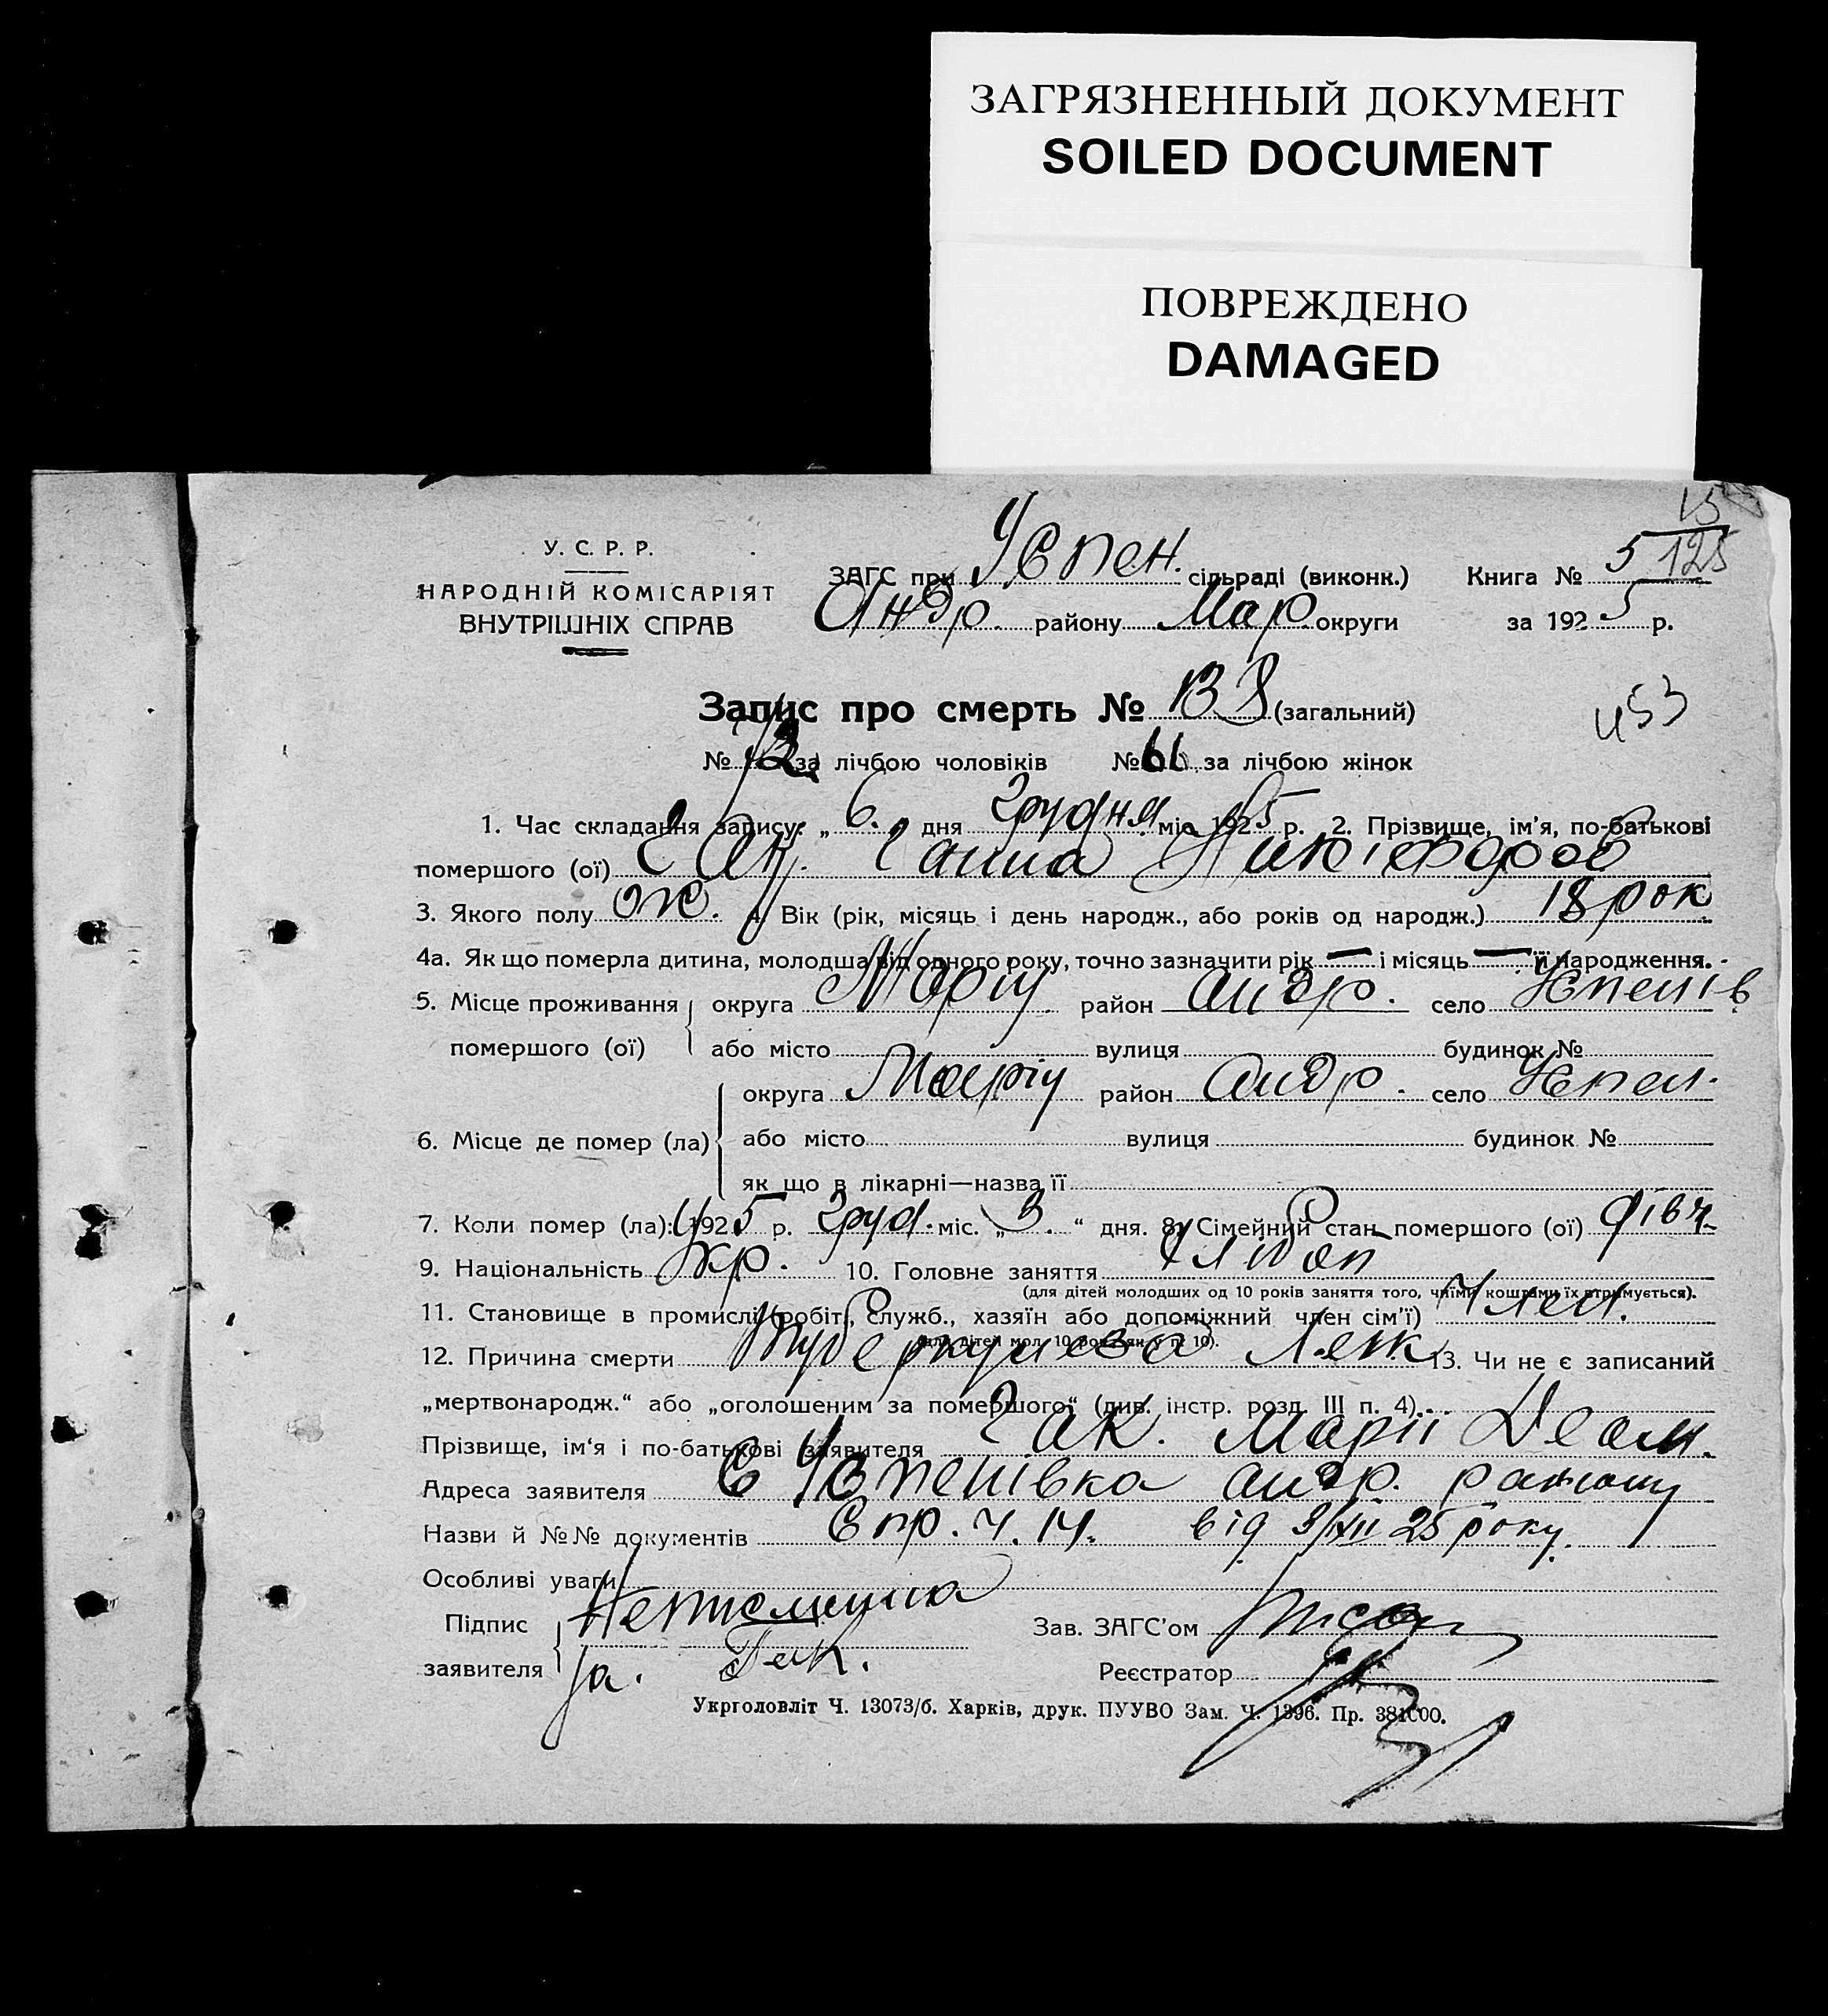 ЗАГРЯЗНЕННЫЙ ДОКУМЕНТ
SOILED DOCUMENT
ПОВРЕЖДЕНО
DAMAGED
15
125
У. С. Р. Р.
НАРОДНІЙ КОМІСАРІЯТ
ВНУТРІШНІХ СПРАВ
ЗАГС при Успен. сільраді (виконк.) Книга № 5
Андр. району Мар. округи за 1925 р.
Запис про смерть № 138 (загальний)
453
№ 72 за лічбою чоловіків № 66 за лічбою жінок
1. Час складання запису: „ 6 „ дня Грудня міс. 1925 р. 2. Прізвище, ім'я, по-батькові
помершого (ої) Гак. Ганна Никіфоров
3. Якого полу ж. 4. Вік (рік, місяць і день народж., або років од народж.) 18 рок
4а. Як що померла дитина, молодша від одного року, точно зазначити рік — і місяць — її народження.
5. Місце проживання помершого (ої) округа Маріу район Андр. село Успенів
або місто вулиця будинок №
6. Місце де помер (ла) округа Маріу район Андр. село Успен.
або місто вулиця будинок №
як що в лікарні—назва її
7. Коли помер (ла): 1925 р. Груд. міс. „ 3. “ дня. 8. Сімейний стан помершого (ої) дівч.
9. Національність Укр. 10. Головне заняття Хлібор
(для дітей молодших од 10 років заняття того, чиїми коштами їх втримується).
11. Становище в промислі (робіт., служб., хазяїн або допоміжний член сім'ї) Член.
(для дітей мол. 10 рок. як у п. 10).
12. Причина смерти Туберкульоз Лек 13. Чи не є записаний
„мертвонародж.“ або „оголошеним за помершого“ (див. інстр. розд. III п. 4)
Прізвище, ім‘я і по-батькові заявителя Гак. Марії Деом.
Адреса заявителя С Успенівка Андр. району
Назви й №№ документів Спр. ч. 14. від 3/XII 25 року.
Особливі уваги
Підпис заявителя Неписменна
за. Гак.
Зав. ЗАГС'ом
Реєстратор
Укрголовліт Ч. 13073/б. Харків, друк. ПУУВО Зам. Ч. 1396. Пр. 381000.